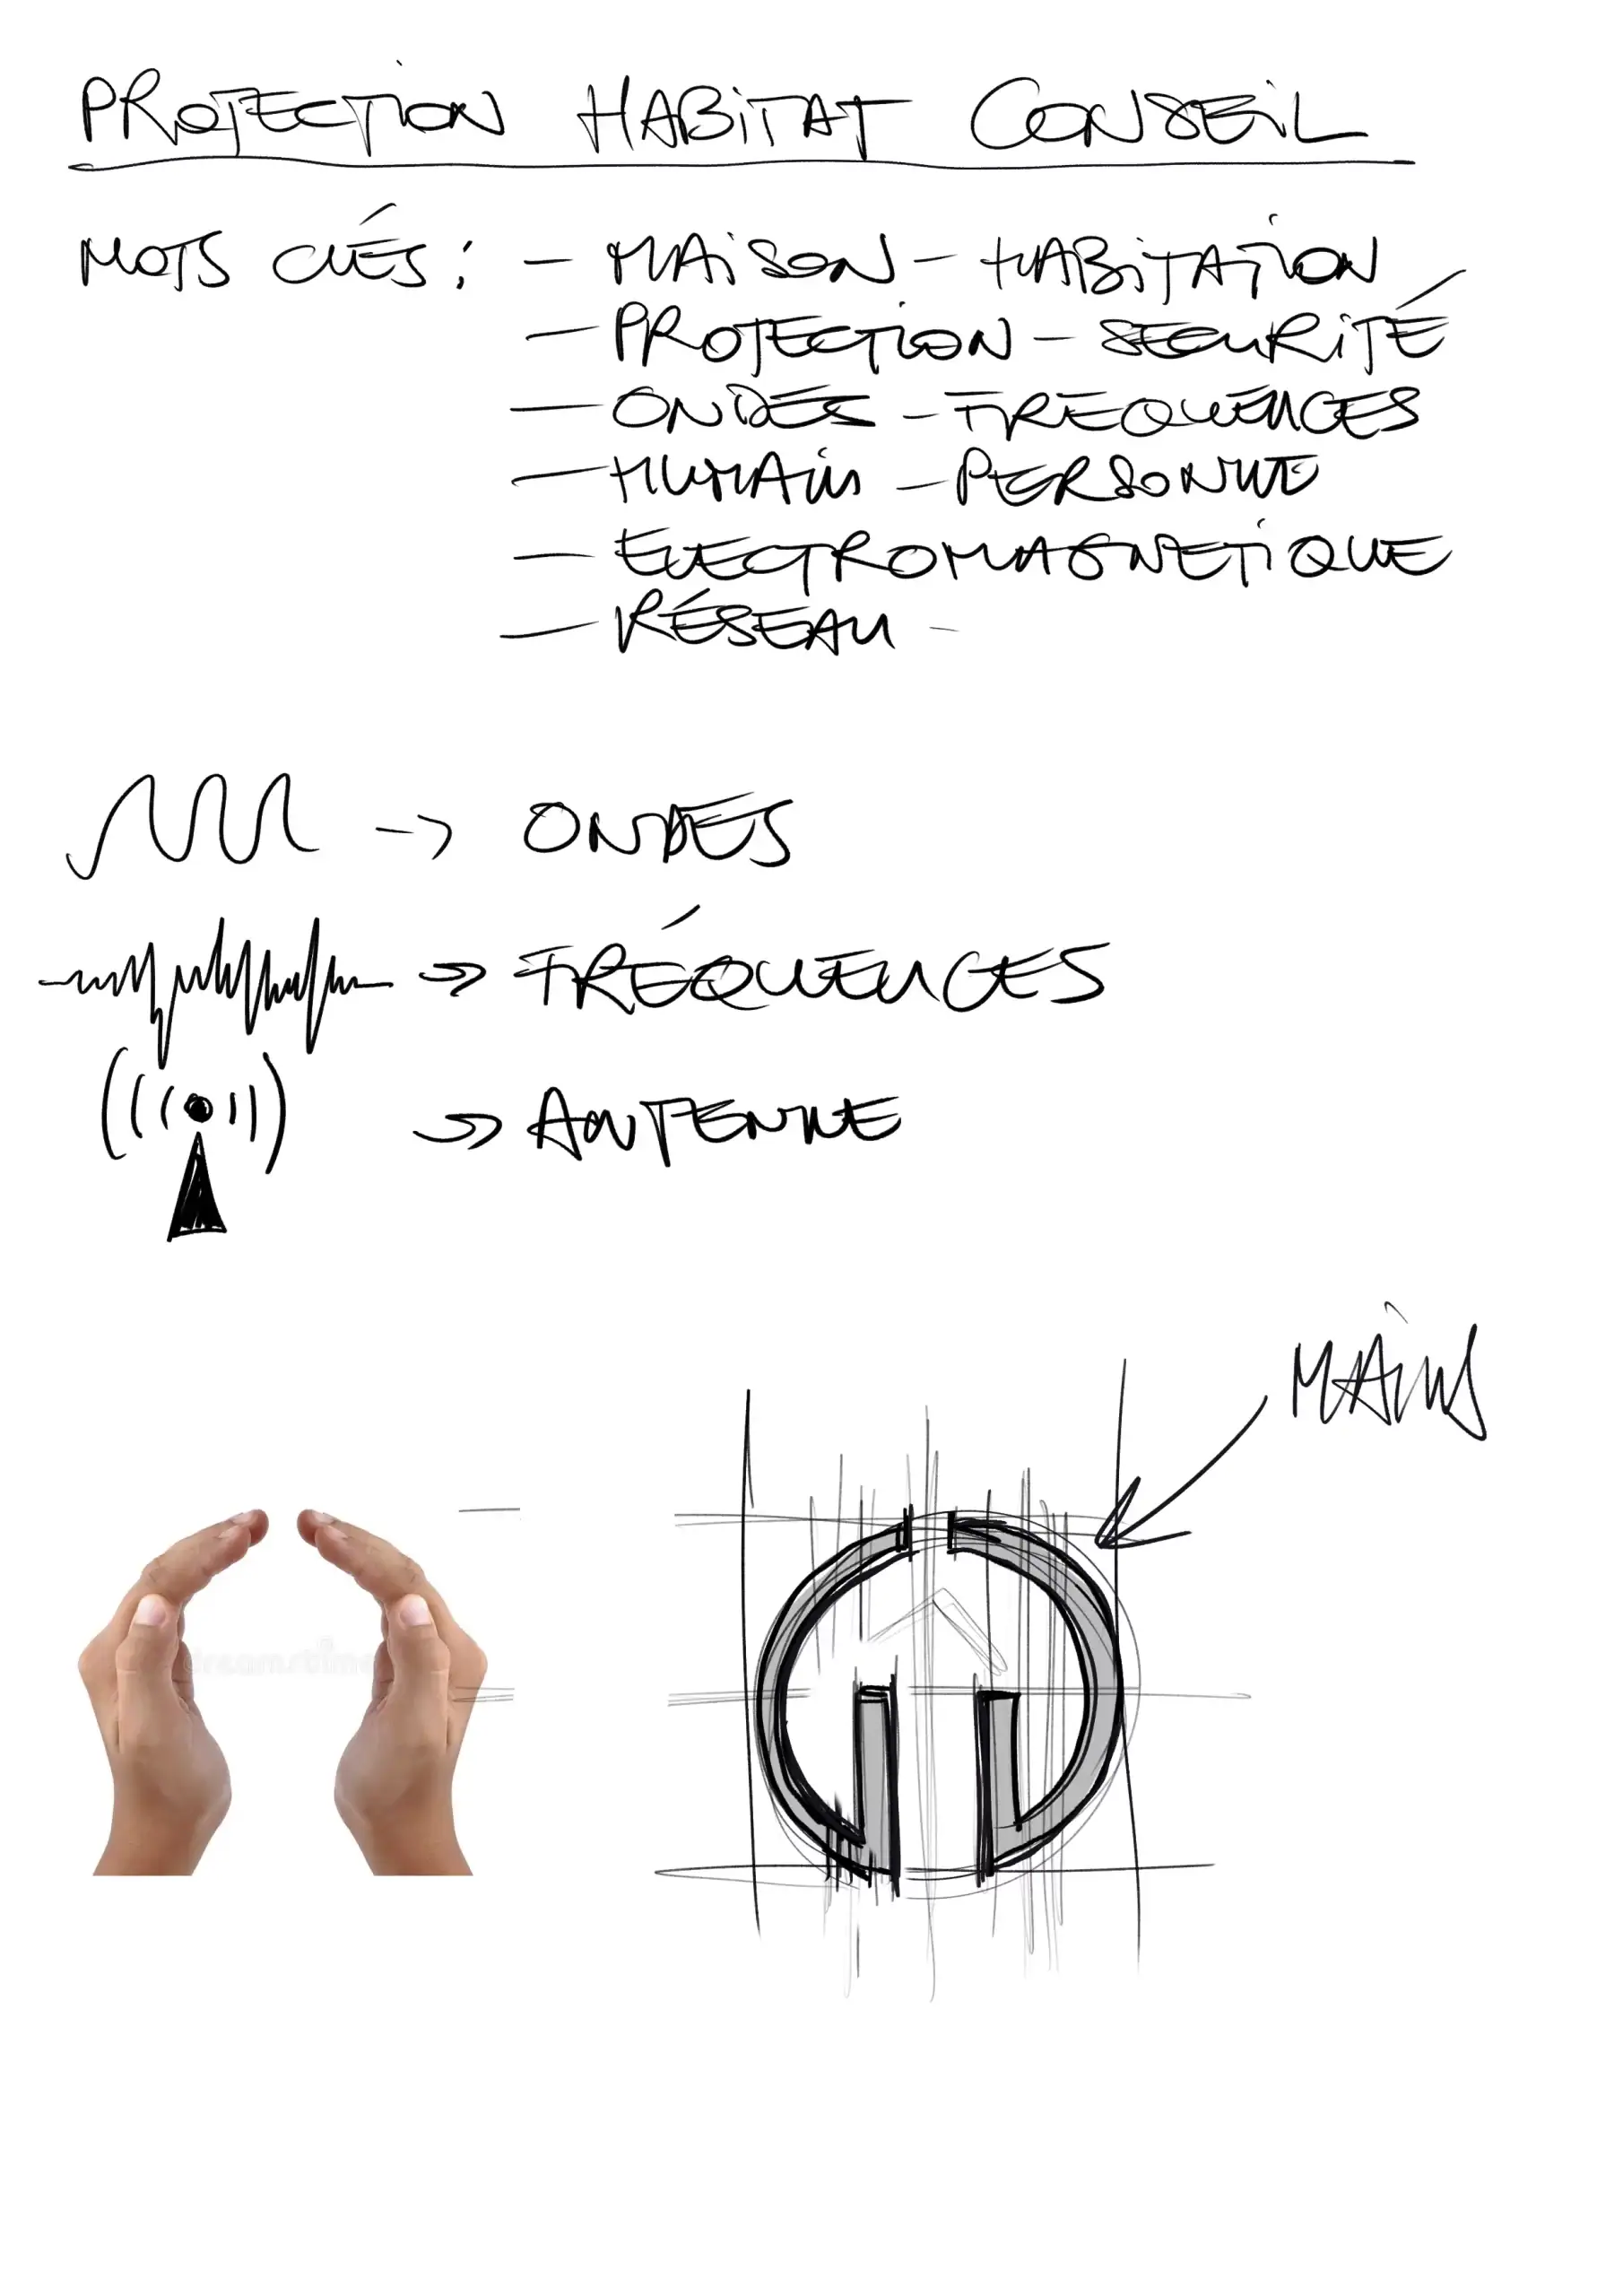 PROTECTION HABITAT CONSEIL
MOTS CLÉS : - MAISON - HABITATION
- PROTECTION - SECURITÉ
- ONDES - FREQUENCES
- HUMAIN - PERSONNE
- ELECTROMAGNETIQUE
- RÉSEAU -
-> ONDES
-> FRÉQUENCES
-> ANTENNE
MAINS
dreamstime